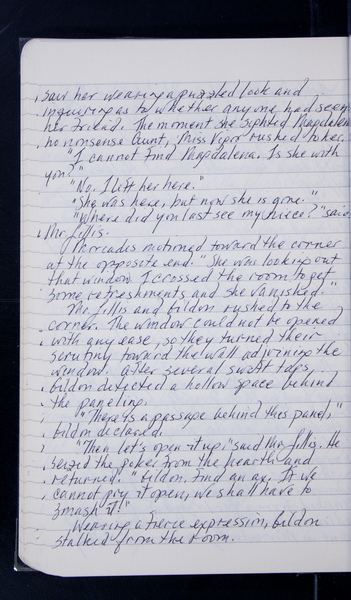 saw her wearing a puzzled look and
inquiring as to whether anyone had seen
her friend. The moment she sighted Magdalena's
no nonsense aunt, Miss Piper rushed to her.
"I cannot find Magdalena. Is she with
you?"
"No. I left her here."
"She was here, but now she is gone."
"Where did you last see my niece?" said
Mr. Fillis.
motioned toward the corner
at the opposite end. "She was looking out
that window. I crossed the room to get
some refreshments and she vanished."
Mr. Fillis and Eildon rushed to the
corner. The window could not be opened
with any ease, so they turned their
scrutiny toward the wall adjoining the
window. After several swift taps,
Eildon detected a hollow space behind
the paneling.
"There is a passage behind this panel,"
Eildon declared.
"Then let's open it up," said Mr. Fillis. He
seized the poker from the hearth and
returned. "Eildon, find an ax. If we
cannot pry it open, we shall have to
smash it!"
Wearing a fierce expression, Eildon
stalked from the room.